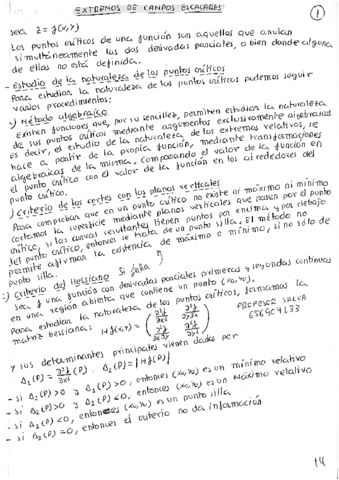 EXTREMOS DE CAMPOS ESCALARES
1
sea z = f(x,y)
Los puntos críticos de una función son aquellos que anulan
simultáneamente las dos derivadas parciales, o bien donde alguna
de ellas no está definida.
- Estudio de la naturaleza de los puntos críticos
Para estudiar la naturaleza de los puntos críticos podemos seguir
varios procedimientos:
Método algebraico
Existen funciones que, por su sencillez, permiten estudiar la naturaleza
de sus puntos críticos mediante argumentos exclusivamente algebraicos
es decir, el estudio de la naturaleza de los extremos relativos, se
hace a partir de la propia función, mediante transformaciones
algebraicas de la misma. Comparando el valor de la función en
el punto crítico con el valor de la función en los alrededores del
punto crítico.
Criterio de los cortes con los planos verticales
Para comprobar que en un punto crítico no existe ni máximo ni mínimo
cortamos la superficie mediante planos verticales que pasen por el punto
crítico, si las curvas resultantes tienen puntos por encima y por debajo
del punto crítico, entonces se trata de un punto silla. El método no
permite afirmar la existencia de máximo o mínimo, si no sólo de
punto silla.
Criterio del Hessiano Si falla
Sea f una función con derivadas parciales primeras y segundas continuas
en una región abierta que contiene un punto (x₀,y₀)
Para estudiar la naturaleza de los puntos críticos, formamos la
matriz hessiana: Hf(x,y) =
PROFESOR SALVA
656904133
y sus determinantes principales vienen dados por
Δ₁(P) = ∂²f/∂x² , Δ₂(P) = |Hf(P)|
- si Δ₂(P) > 0 y Δ₁(P) > 0, entonces (x₀,y₀) es un mínimo relativo
- si Δ₂(P) > 0 y Δ₁(P) < 0, entonces (x₀,y₀) es un máximo relativo
- si Δ₂(P) < 0, entonces (x₀,y₀) es un punto silla
- si Δ₂(P) = 0, entonces el criterio no da información
14